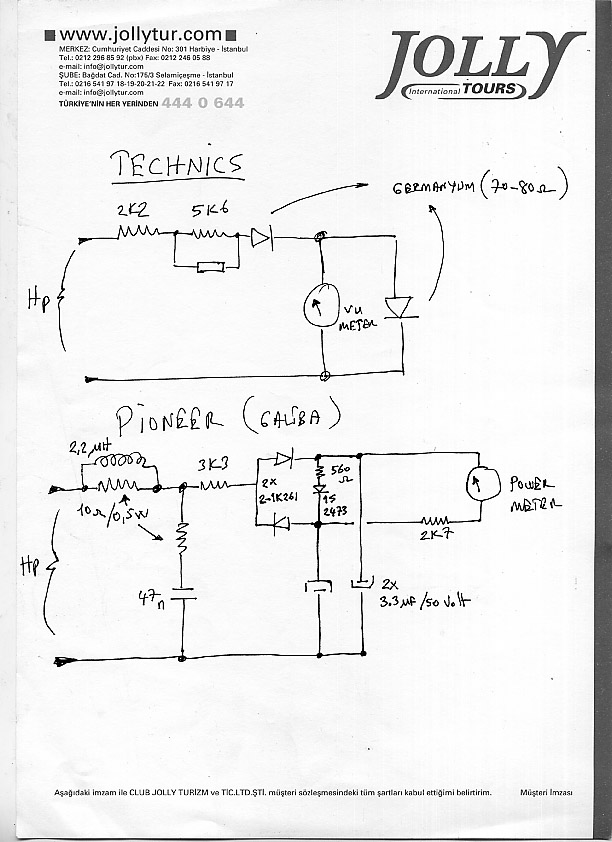 www.jollytur.com
MERKEZ: Cumhuriyet Caddesi No: 301 Harbiye - İstanbul
Tel.: 0212 296 85 92 (pbx) Fax: 0212 246 05 88
e-mail: info@jollytur.com
ŞUBE: Bağdat Cad. No:175/3 Selamiçeşme - İstanbul
Tel.: 0216 541 97 18-19-20-21-22 Fax: 0216 541 97 17
e-mail: info@jollytur.com
TÜRKİYE'NİN HER YERİNDEN 444 0 644
JOLLY
International TOURS
TECHNICS
GERMANYUM (70-80Ω)
2K2
5K6
Hp
VU
METER
PİONEER (GALİBA)
2,2 µH
3K3
10Ω/0,5W
2x
2-1K261
560
Ω
1S
2473
POWER
METER
2K7
Hp
47n
2x
3.3µF/50 Volt
Aşağıdaki imzam ile CLUB JOLLY TURİZM ve TİC.LTD.ŞTİ. müşteri sözleşmesindeki tüm şartları kabul ettiğimi belirtirim.
Müşteri İmzası